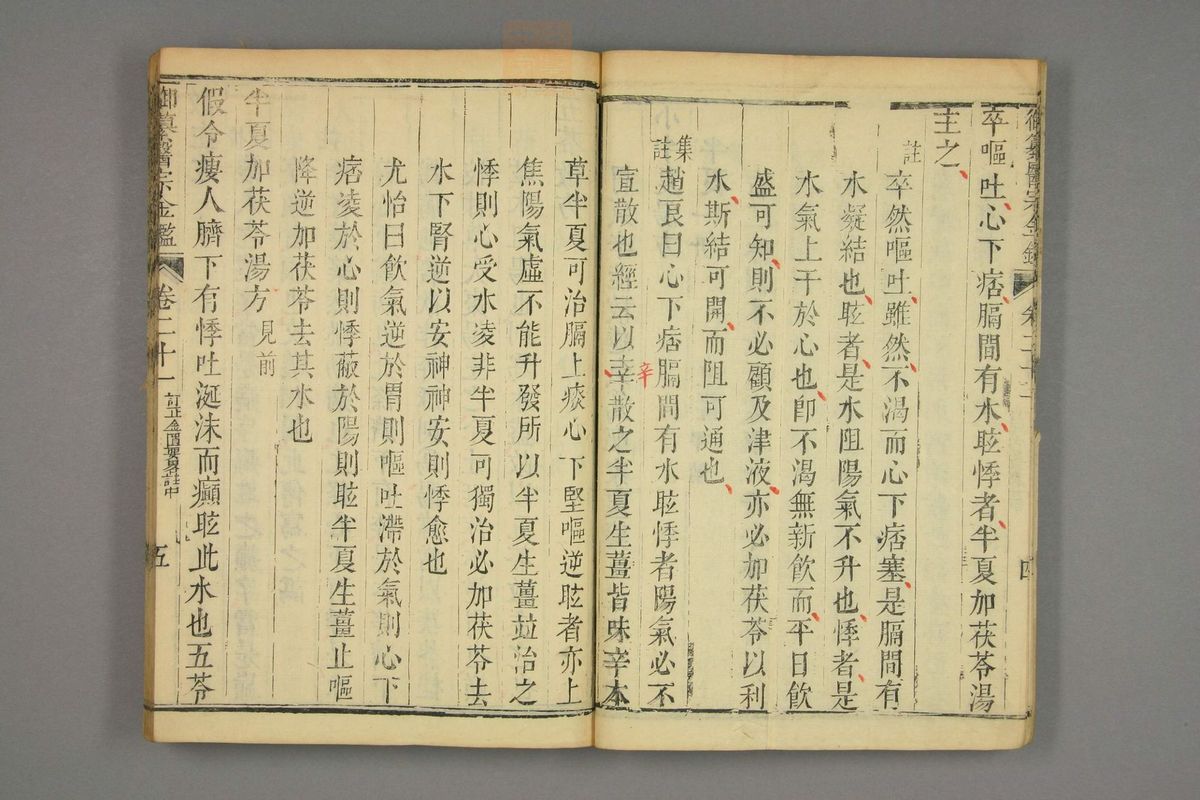 御纂醫宗金鑑
卒嘔吐心下痞膈間有水眩悸者半夏加茯苓湯
主之
註
卒然嘔吐雖然不渴而心下痞塞是膈間有
水凝結也眩者是水阻陽氣不升也悸者是
水氣上干於心也卽不渴無新飲而平日飲
盛可知則不必顧及津液亦必加茯苓以利
水斯結可開而阻可通也
集註
趙良曰心下痞膈間有水眩悸者陽氣必不
宜散也經云以辛散之半夏生薑皆味辛本
辛
四
草半夏可治膈上痰心下堅嘔逆眩者亦上
焦陽氣虛不能升發所以半夏生薑並治之
悸則心受水凌非半夏可獨治必加茯苓去
水下腎逆以安神神安則悸愈也
尤怡曰飲氣逆於胃則嘔吐滯於氣則心下
痞凌於心則悸蔽於陽則眩半夏生薑止嘔
降逆加茯苓去其水也
半夏加茯苓湯方見前
假令瘦人臍下有悸吐涎沫而癲眩此水也五苓
御纂醫宗金鑑
卷二十一
訂正金匱要畧註中
五